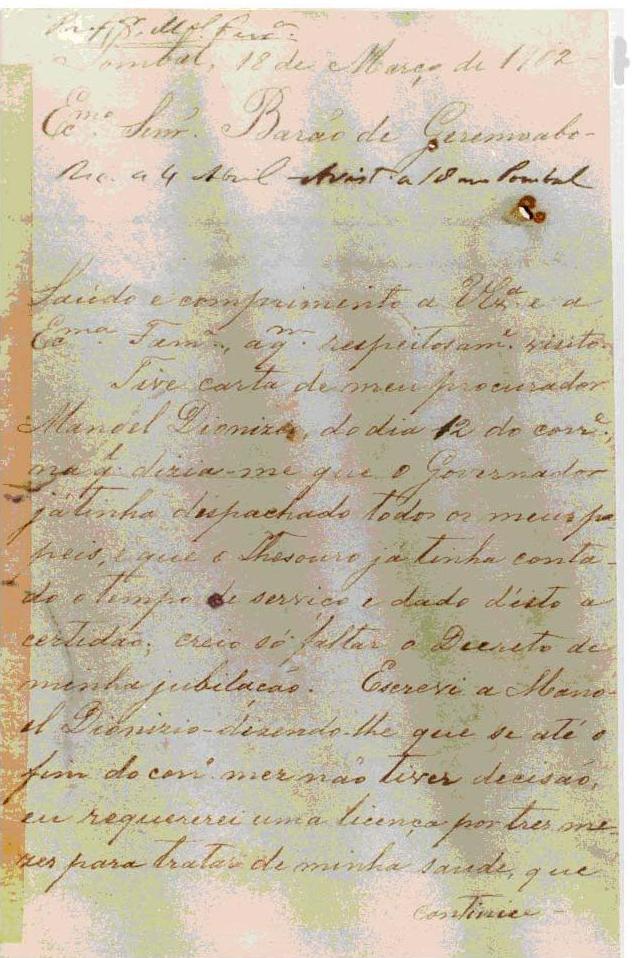 Pombal, 18 de Março de 1902
Ecmo. Senr. Barão de Geremoabo-
Rec. a 4 Abril a 18 no Pombal
Saúdo e comprimento a VExa. e a
Ecma. Fama., a qm. respeitosame. visito.
Tive carta de meu procurador
Manoel Dionizio, do dia 12 do corre.,
na ql. dizia-me que o Governador
já tinha despachado todos os meus pa
peis, e que o Thesouro já tinha conta-
do o tempo de serviço e dado d'isto a
certidão; creio só faltar o Decreto de
minha jubilação. Escrevi a Mano-
el Dionizio dizendo-lhe que se até o
fim do corre. mez não tiver decisão,
eu requererei uma licença por tres me-
zes para tratar de minha saude, que
continue-